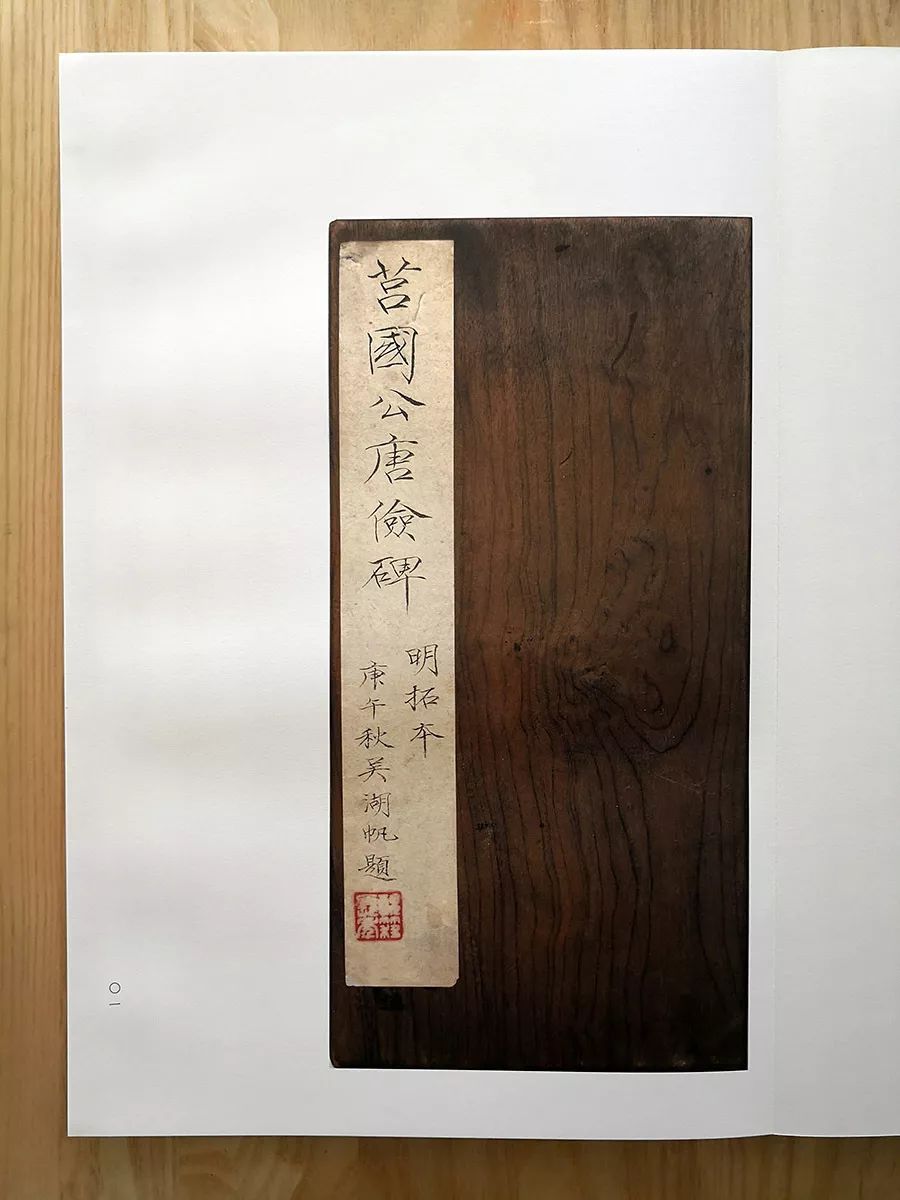 莒國公唐儉碑
明拓本
庚午秋吴湖帆題
〇一